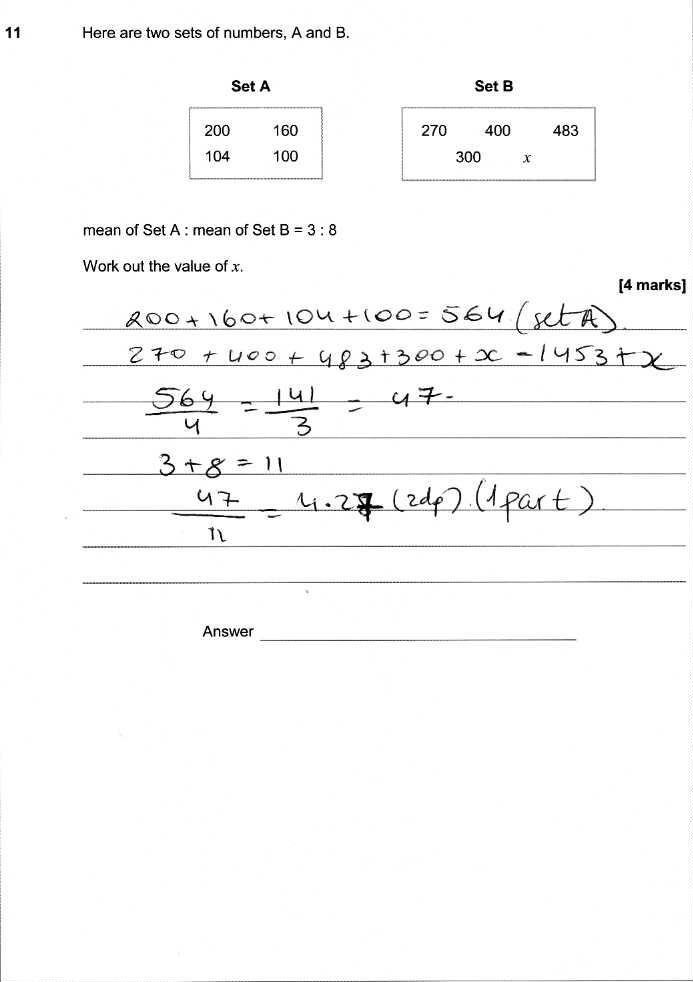 11 Here are two sets of numbers, A and B.
Set A Set B
200 160 270 400 483
104 100 300 x
mean of Set A : mean of Set B = 3 : 8
Work out the value of x.
[4 marks]
200+160+104+100=564 (set A).
270 + 400 + 483+300 + x = 1453+x
564/4 = 141/3 = 47.
3+8=11
47/11 = 4.27 (2dp) (1 part).
Answer